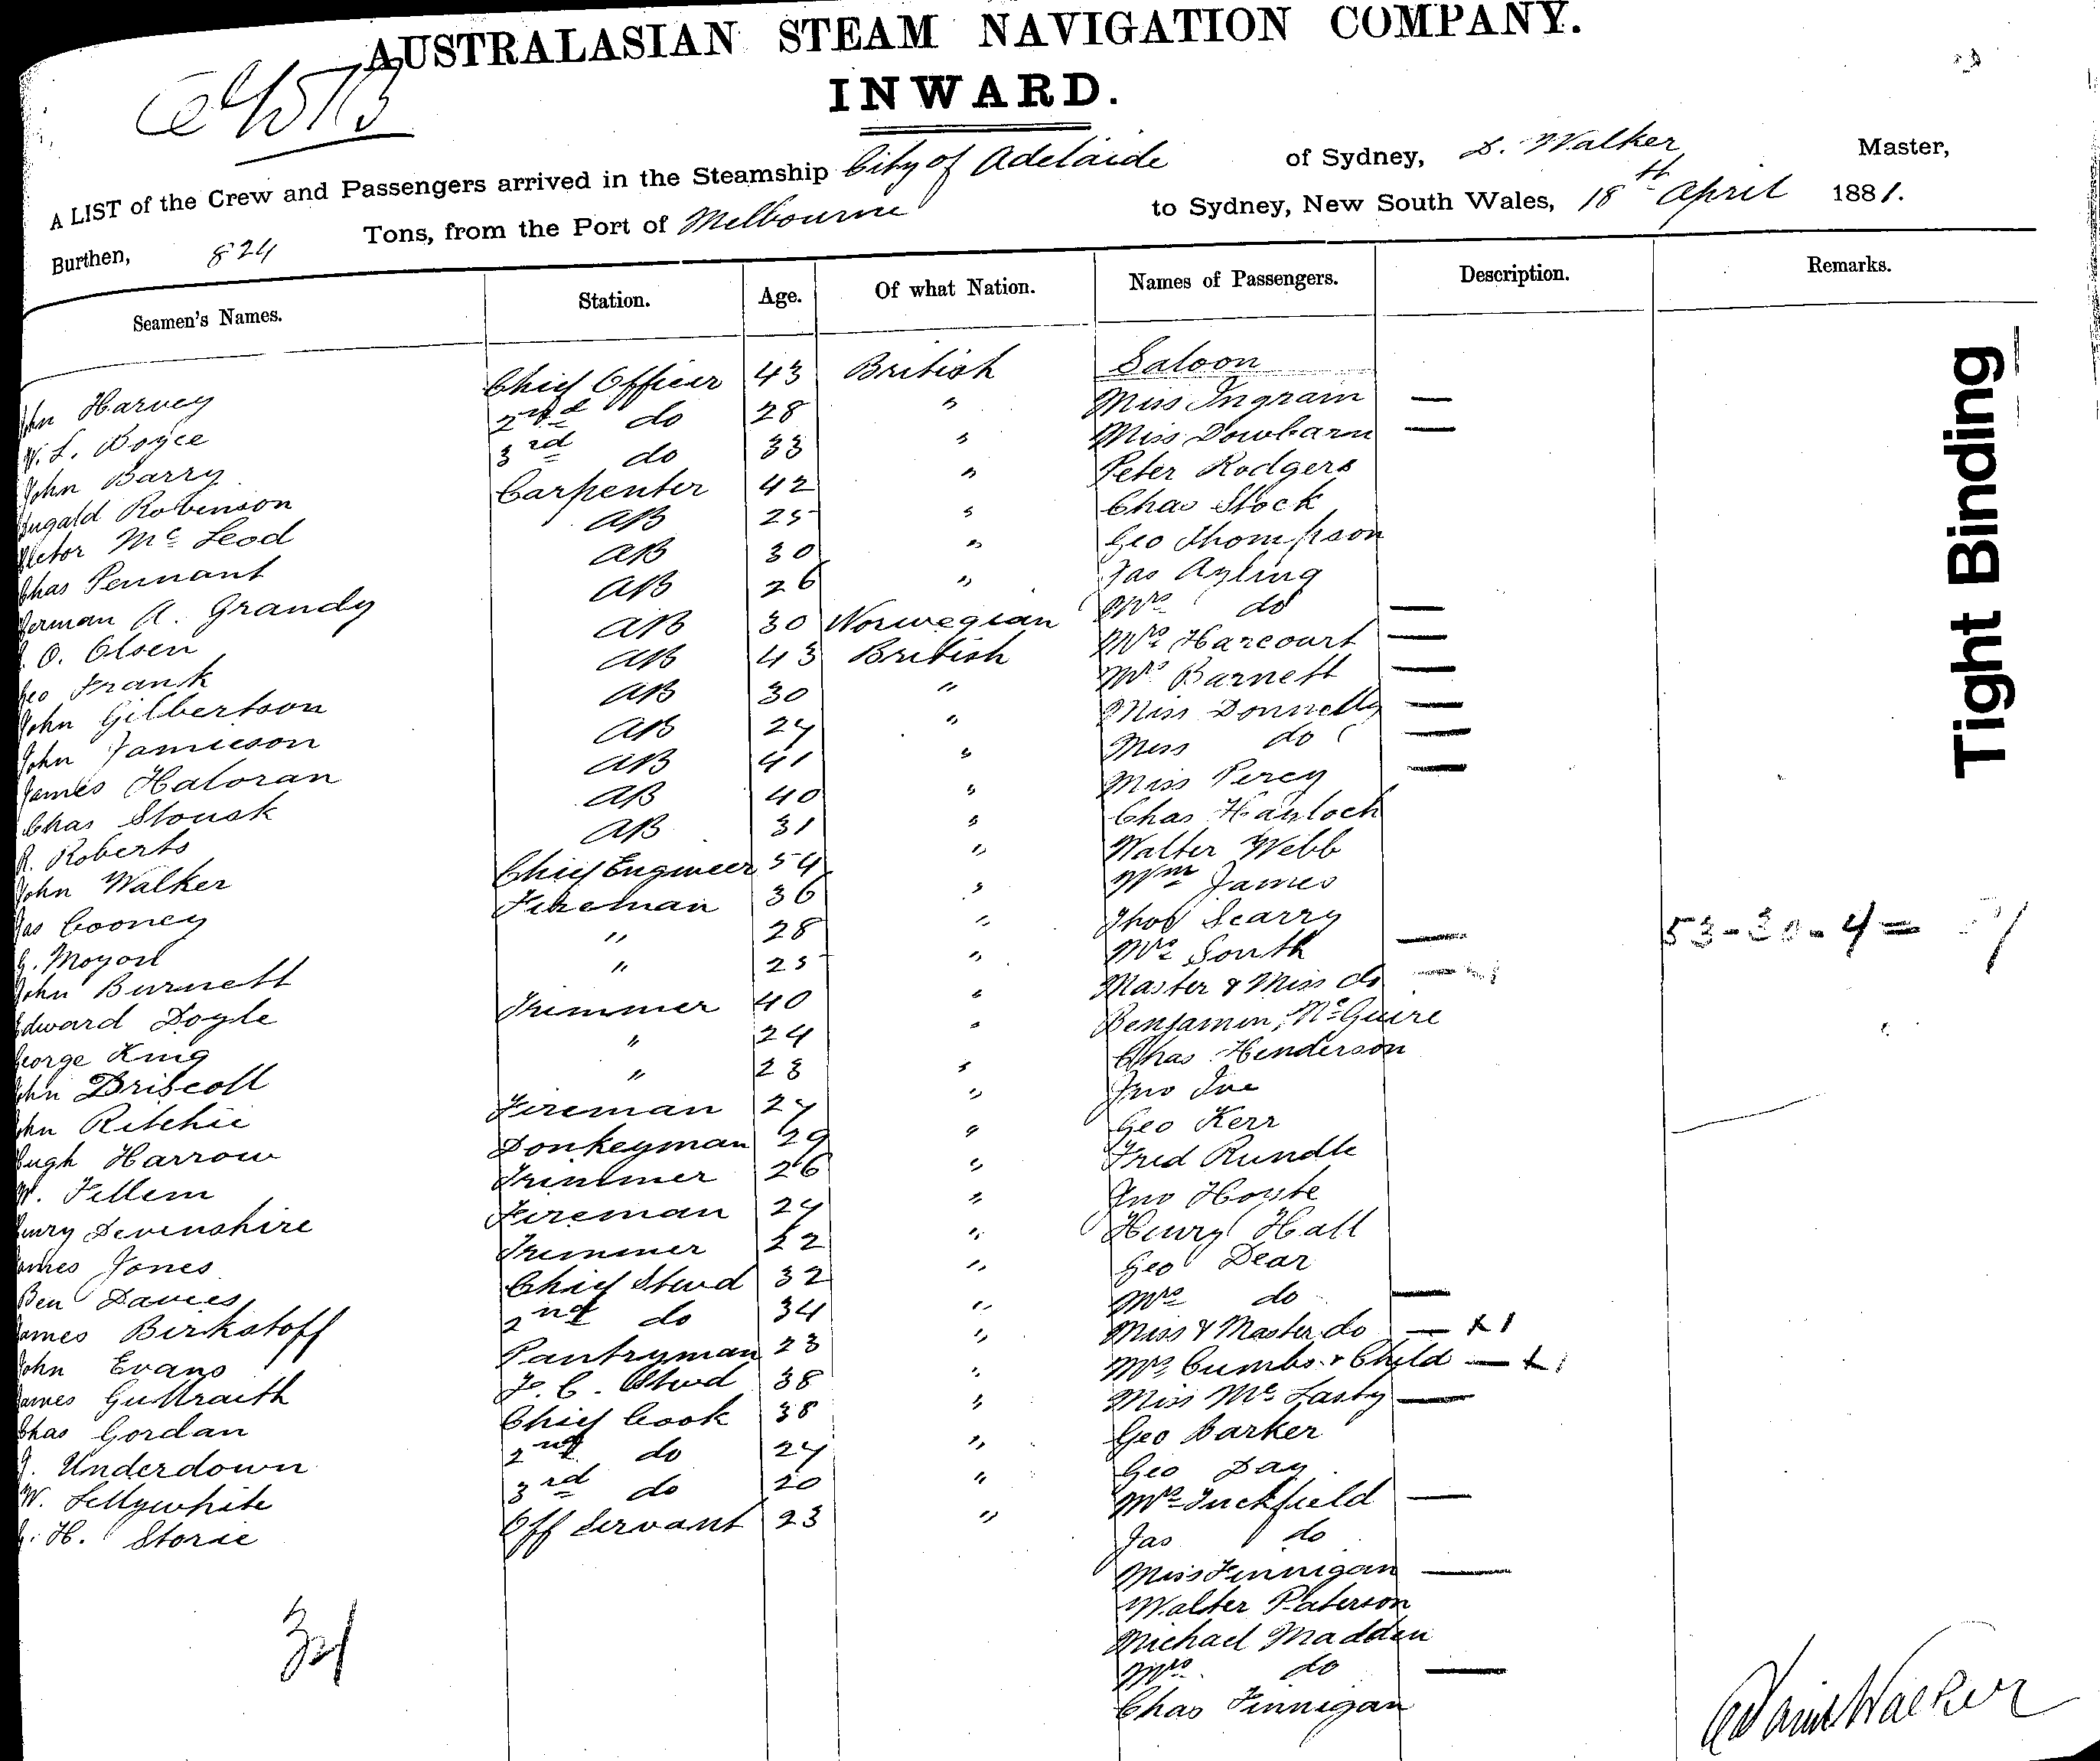 AUSTRALASIAN STEAM NAVIGATION COMPANY.
INWARD.
A LIST of the Crew and Passengers arrived in the Steamship City of Adelaide of Sydney, D. Walker Master,
Burthen, 824 Tons, from the Port of Melbourne to Sydney, New South Wales, 18th April 1881.
Seamen's Names. Station. Age. Of what Nation. Names of Passengers. Description. Remarks.
Saloon
John Harvey Chief Officer 43 British Miss Ingram —
W. L. Boyce 2nd do 28 " Miss Dowbarn —
John Barry 3rd do 33 " Peter Rodgers
Dugald Robinson Carpenter 42 " Chas Stock
Mc Leod AB 25 " Geo Thompson
Chas Pennant AB 30 " Jas Ayling
Herman A. Grandy AB 26 " Mrs do —
O. Olsen AB 30 Norwegian Mrs Harcourt —
Geo Frank AB 43 British Mrs Barnett —
John Gilbertson AB 30 " Miss Donnelly —
John Jamieson AB 27 " Miss do —
James Haloran AB 41 " Miss Percy —
Chas Stousk AB 40 " Chas
R. Roberts AB 31 " Walter Webb
John Walker Chief Engineer 54 " Wm James
Jas Cooney Fireman 36 " Thos Scarry
G. " 28 " Mrs South —
John Burnett " 25 " Master & Miss do —
Edward Doyle Trimmer 40 " Benjamin McGuire
George King " 24 " Chas Henderson
John Driscoll " 23 " Jno
John Ritchie Fireman 27 " Geo Kerr
Hugh Harrow Donkeyman 29 " Fred Rundle
W. Fellem Trimmer 26 " Jno
Henry Devenshire Fireman 27 " Henry Hall
James Jones Trimmer 22 " Geo Dear
Ben Davies Chief Stwd 32 " Mrs do —
James Birkstoff 2nd do 34 " Miss & Master do — x 1
John Evans Pantryman 23 " Mrs Cumbs & Child — x 1
James Gullraith F. C. Stwd 38 " Miss Mc Lasty —
Chas Gordan Chief Cook 38 " Geo Barker
J. Underdown 2nd do 27 " Geo Day
W. Lellywhite 3rd do 20 " Mrs Tuckfield —
H. Storie Off Servant 23 " Jas do
Miss Finnigan —
Walter Paterson
Michael Madden
Mrs do —
Chas Finnigan
53-30-4=
Tight Binding